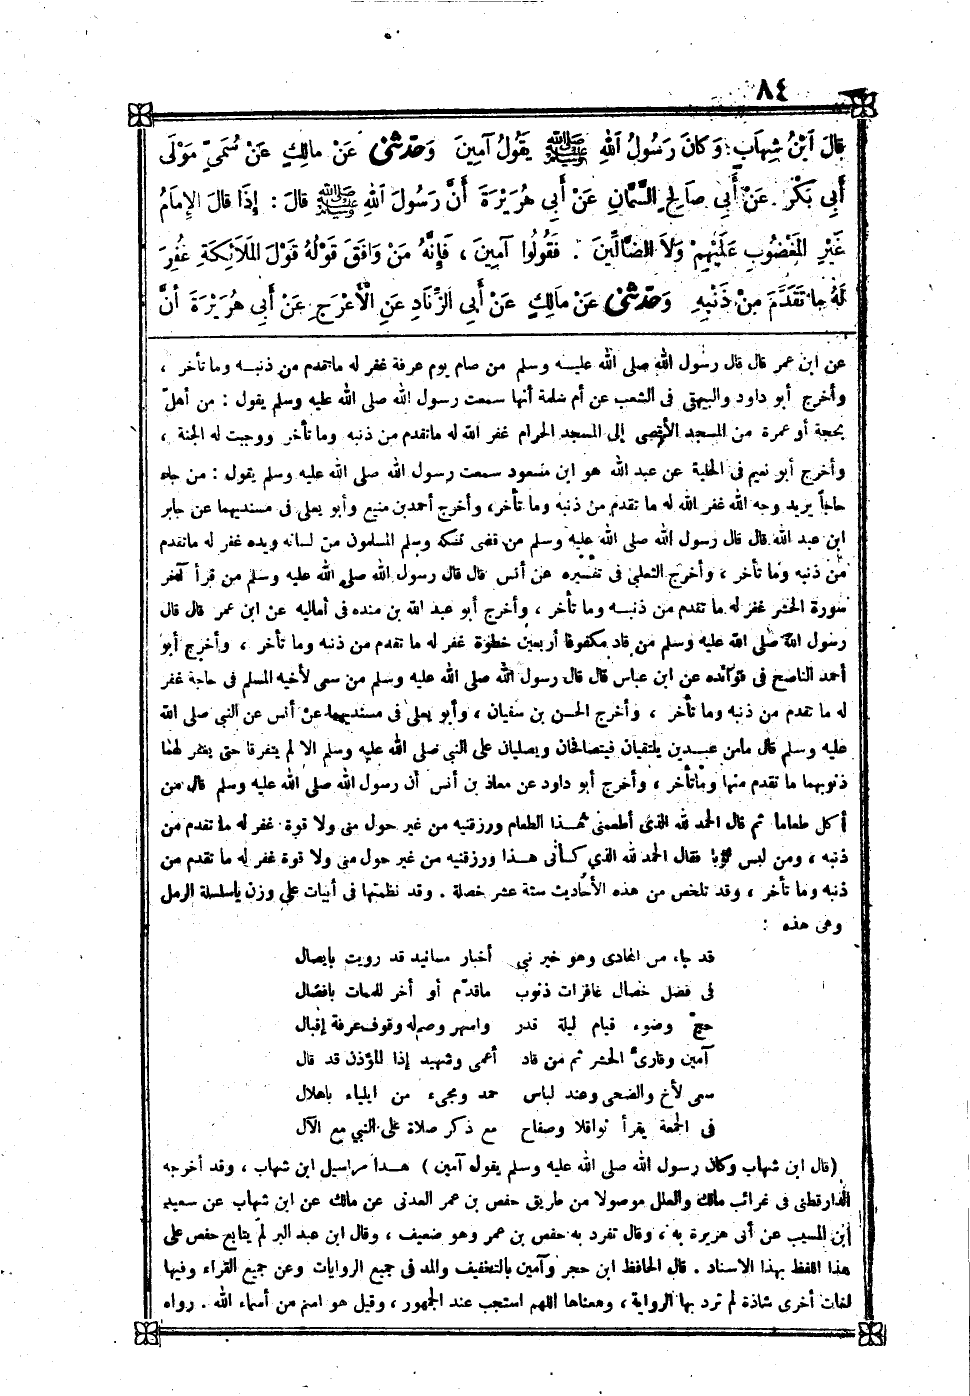 ٨٤
قالَ ابْنُ شِهابٍ: وَكانَ رَسُولُ اللهِ ﷺ يَقُولُ آمِينَ وَحَدَّثَنِي عَنْ مالِكٍ عَنْ سُمَيٍّ مَوْلَى
أَبِي بَكْرٍ. عَنْ أَبِي صَالِحٍ السَّمَّانِ عَنْ أَبِي هُرَيْرَةَ أَنَّ رَسُولَ اللهِ ﷺ قالَ: إِذَا قالَ الإِمَامُ
غَيْرِ المَغْضُوبِ عَلَيْهِمْ وَلاَ الضَّالِّينَ. فَقُولُوا آمِينَ، فَإِنَّهُ مَنْ وَافَقَ قَوْلُهُ قَوْلَ المَلاَئِكَةِ غُفِرَ
لَهُ ما تَقَدَّمَ مِنْ ذَنْبِهِ وَحَدَّثَنِي عَنْ مالِكٍ عَنْ أَبِي الزِّنَادِ عَنِ الْأَعْرَجِ عَنْ أَبِي هُرَيْرَةَ أَنَّ
عن ابن عمر قال قال رسول الله صلى الله عليه وسلم من صام يوم عرفة غفر له ما تقدم من ذنبه وما تأخر ،
وأخرج أبو داود والبيهقى فى الشعب عن أم سلمة أنها سمعت رسول الله صلى الله عليه وسلم يقول : من أهل
بحجة أو عمرة من المسجد الأقصى إلى المسجد الحرام غفر الله له ما تقدم من ذنبه وما تأخر ووجبت له الجنة ،
وأخرج أبو نعيم فى الحلية عن عبد الله هو ابن مسعود سمعت رسول الله صلى الله عليه وسلم يقول : من جاء
حاجاً يريد وجه الله غفر الله له ما تقدم من ذنبه وما تأخر، وأخرج أحمد بن منيع وأبو يعلى فى مسنديهما عن جابر
ابن عبد الله قال قال رسول الله صلى الله عليه وسلم من قضى نسكه وسلم المسلمون من لسانه ويده غفر له ما تقدم
من ذنبه وما تأخر ، وأخرج الثعلبى فى تفسيره عن أنس قال قال رسول الله صلى الله عليه وسلم من قرأ آخر
سورة الحشر غفر له ما تقدم من ذنبه وما تأخر ، وأخرج أبو عبد الله بن منده فى أماليه عن ابن عمر قال قال
رسول الله صلى الله عليه وسلم من قاد مكفوفا أربعين خطوة غفر له ما تقدم من ذنبه وما تأخر ، وأخرج أبو
أحمد الناصح فى فوائده عن ابن عباس قال قال رسول الله صلى الله عليه وسلم من سعى لأخيه المسلم فى حاجة غفر
له ما تقدم من ذنبه وما تأخر ، وأخرج الحسن بن سفيان ، وأبو يعلى فى مسنديهما عن أنس عن النبى صلى الله
عليه وسلم قال ما من عبدين يلتقيان فيتصافحان ويصليان على النبى صلى الله عليه وسلم الا لم يتفرقا حتى يغفر لهما
ذنوبهما ما تقدم منها وما تأخر ، وأخرج أبو داود عن معاذ بن أنس أن رسول الله صلى الله عليه وسلم قال من
أكل طعاما ثم قال الحمد لله الذى أطعمنى هذا الطعام ورزقنيه من غير حول منى ولا قوة غفر له ما تقدم من
ذنبه ، ومن لبس ثوبا فقال الحمد لله الذى كسانى هذا ورزقنيه من غير حول منى ولا قوة غفر له ما تقدم من
ذنبه وما تأخر ، وقد تلخص من هذه الأحاديث ستة عشر خصلة . وقد نظمتها فى أبيات على وزن ياسلسلة الرمل
وهى هذه :
قد جاء من الهادى وهو خير نبى أخبار مسانيد قد رويت بإيصال
فى فضل خصال غافرات ذنوب ما قدّم أو أخر للممات بافضال
حجّ وضوء قيام ليلة قدر واسهر وصم له وقوف عرفة إقبال
آمين وقارئ الحشر ثم من قاد أعمى وشهيد إذا المؤذن قد قال
سعى لأخ والضحى وعند لباس حمد ومجىء من ايلياء باهلال
فى الجمعة يقرأ نواقلا وصفاح مع ذكر صلاة على النبى مع الآل
(قال ابن شهاب وكان رسول الله صلى الله عليه وسلم يقول آمين) هذا مراسيل ابن شهاب ، وقد أخرجه
الدارقطنى فى غرائب مالك والعلل موصولا من طريق حفص بن عمر العدنى عن مالك عن ابن شهاب عن سعيد
ابن المسيب عن أبى هريرة به ، وقال تفرد به حفص بن عمر وهو ضعيف ، وقال ابن عبد البر لم يتابع حفص على
هذا اللفظ بهذا الاسناد . قال الحافظ ابن حجر وآمين بالتخفيف والمد فى جميع الروايات وعن جميع القراء وفيها
لغات أخرى شاذة لم ترد بها الرواية ، ومعناها اللهم استجب عند الجمهور ، وقيل هو اسم من أسماء الله . رواه